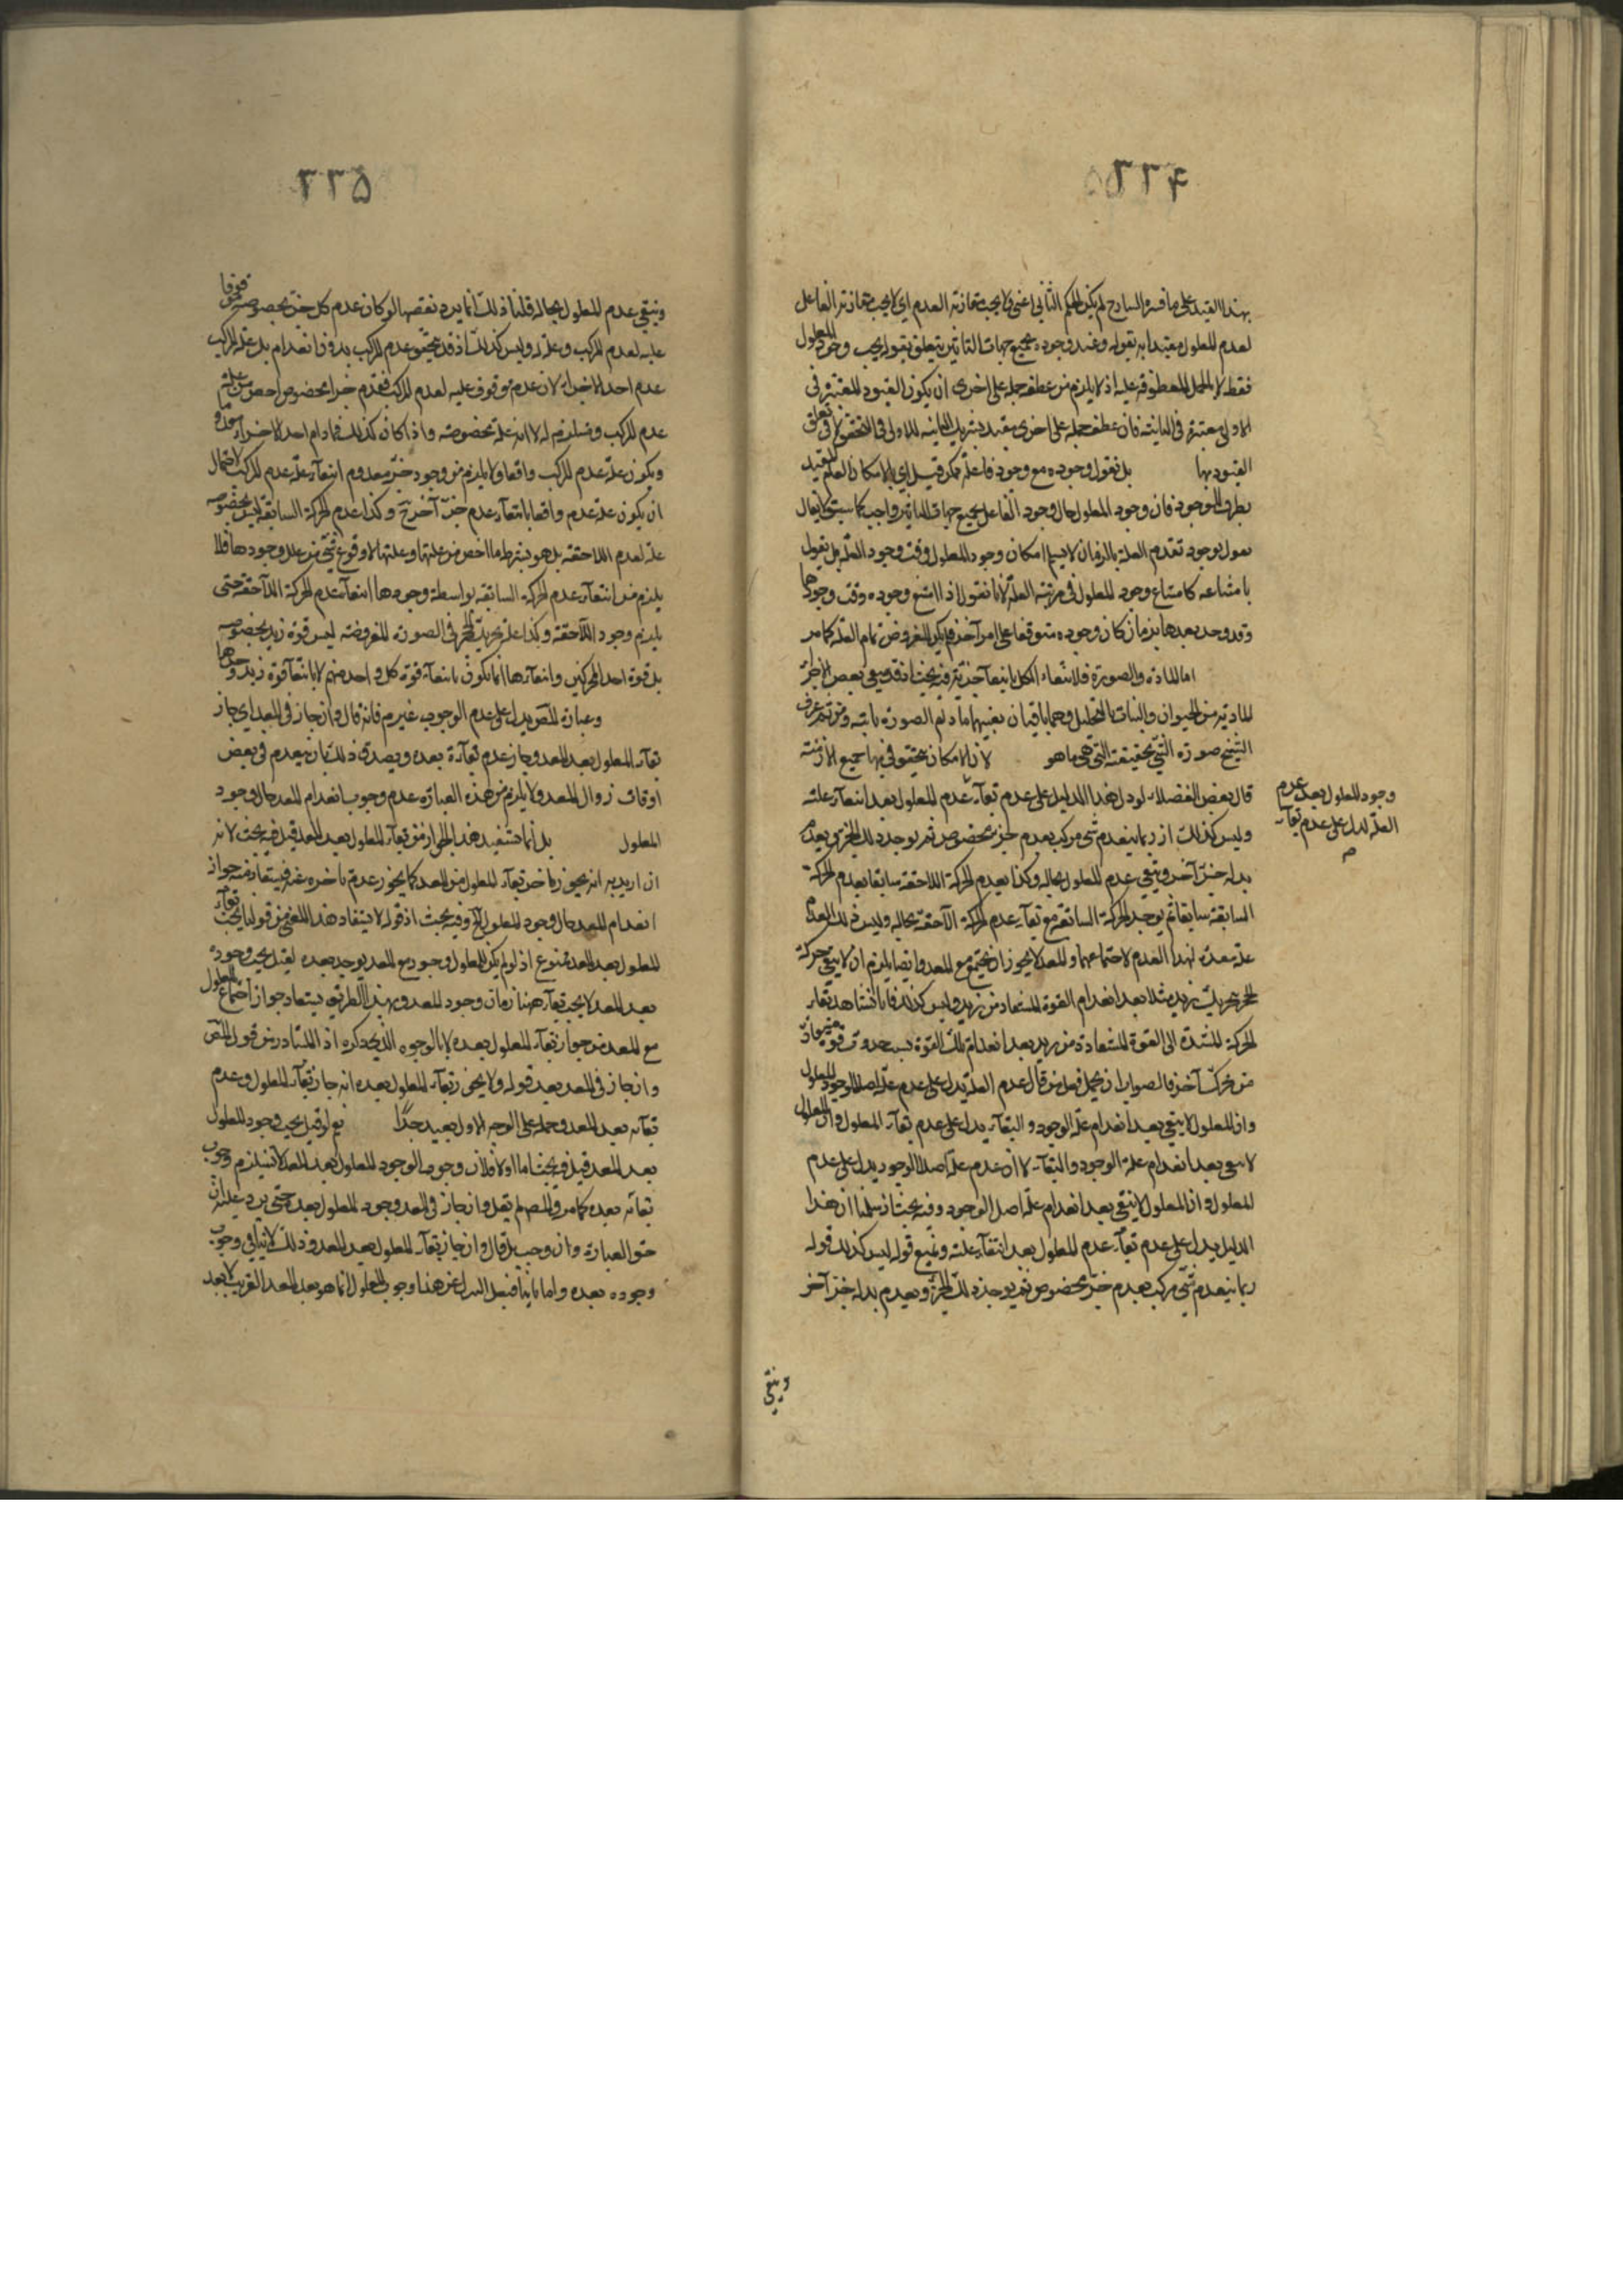 ٢٢٤
بهذا القيد على ما فسره الشارح لم يكن الحكم الثاني اعنى ولا يجب مقارنة العدم اي لا يجب مقارنة الفاعل
لعدم المعلول مقيدا به بقوله وعند وجوده بجميع جهات التأثير يتعلق بقوله يجب وجود المعلول
فقط لا بالجمل المعطوفة عليه اذ لا يلزم من عطف جملة على اخرى ان يكون القيود المعتبرة في
الاولى معتبرة في الثانية فان عطف جملة على اخرى مقيد بتشريك الثانية للاولى في التحقق لا في تعلق
القيود بها بل نقول وجوده مع وجود فاعله ممكن قيل اي بالامكان العام المقيد
بطرف الوجود فان وجود المعلول حال وجود الفاعل بجميع جهات التأثير واجب كما سيق لا يقال
نقول بوجود تقدم العلة بالزمان لا يسلم امكان وجود المعلول وقت وجود العلة بل نقول
بامتناعه كامتناع وجود المعلول في مرتبة العلة لانا نقول اذا امتنع وجوده وقت وجودها
وقد وجد بعدها بزمان كان وجوده متوقفا على امر آخر فلم يكن المفروض تمام العلة كما مر
اما المادة والصورة فلانتفاء الكل بانتفاء جزئه فيه بحث اذ قد يبقى بعض
المادية من الحيوان والنبات بالتحليل وهما باقيان بعينهما ما دام الصورة باقية ومن ثم عرف
الشيخ صورة الشئ بحقيقته التي هي ما هو لان الامكان يتحقق فيها جميع الازمنة
قال بعض الفضلاء لو دل هذا الدليل على عدم بقاء عدم المعلول بعد انتفاء علته
وليس كذلك اذ ربما ينعدم شئ مركب بعدم جزء مخصوص ثم يوجد ذلك الجزء ويعدم
بدله جزء آخر ويبقى عدم المعلول بحاله وكذا يعدم الحركة اللاحقة سابقا بعدم الحركة
السابقة سابقا ثم يوجد الحركة السابقة مع بقاء عدم الحركة اللاحقة بحاله وليس ذلك العدم
علة معدة لهذا العدم لاجتماعهما والمعد لا يجوز ان يجتمع مع المعد وايضا يلزم ان لا يبقى حركة
الحجر بتحريك زيد مثلا بعد انعدام القوة المستفادة من زيد وليس كذلك فانا نشاهد بقاء
الحركة المستندة الى القوة المستفادة من زيد بعد انعدام تلك القوة بسبب حدوث قوة
من محرك آخر فالصواب ان يحمل قول من قال عدم العلة يدل على عدم علة اصل الوجود للمعلول
وان المعلول لا يبقى بعد انعدام علة الوجود والبقاء يدل على عدم بقاء المعلول وان المعلول
لا يبقى بعد انعدام علة الوجود والبقاء لا ان عدم علة اصل الوجود يدل على عدم
المعلول وان المعلول لا يبقى بعد انعدام علة اصل الوجود وفيه بحث اذ سلمنا ان هذا
الدليل يدل على عدم بقاء عدم المعلول بعد انتفاء علته ونمنع قوله ليس كذلك قوله
ربما ينعدم شئ مركب بعدم جزء مخصوص ثم يوجد ذلك الجزء ويعدم بدله جزء آخر
وجود المعلول بعد عدم
العلة لدل على عدم بقاء
م
ويبقى
٢٢٥
ويبقى عدم المعلول بحاله قلنا ذلك انما يرد نقضا لو كان عدم كل جزء بخصوصه موقوفا
عليه لعدم المركب وعلة له وليس كذلك اذ قد يتحقق عدم المركب بدون انعدامه بل علة المركب
عدم احد الاجزاء لان عدم موقوف عليه لعدم المركب فعدم جزء مخصوص اخص من علة
عدم المركب ومستلزم له لا انه علة بخصوصه واذا كان كذلك فما دام احد الاجزاء معدوما
ويكون علة عدم المركب واقعا ولا يلزم من وجود جزء معدوم انتفاء علة عدم المركب لاحتمال
ان يكون علة عدم واقعا بانتفاء عدم جزء آخر ح وكذا عدم الحركة السابقة ليس بخصوصه
علة لعدم اللاحقة بل هو بشرط ما اخص من علتها وعلتها لا وقوع شئ من علل وجودها فلا
يلزم من انتفاء عدم الحركة السابقة بواسطة وجودها انتفاء عدم الحركة اللاحقة حتى
يلزم وجود اللاحقة وكذا علة تحريك الحجر في الصورة المفروضة ليس قوة زيد بخصوصه
بل قوة احد المحركين وانتفاءها انما يكون بانتفاء قوة كل واحد منهم لا بانتفاء قوة زيد وحدها
وعبارة المص يدل على عدم الوجوب غير مر فانه قال وان جاز في المعد اي جاز
بقاء المعلول بعد المعد وجاز عدم بقاءه بعده ويصدق ذلك بان ينعدم في بعض
اوقات زوال المعد ولا يلزم من هذه العبارة عدم وجوب انعدام المعد حال وجود
المعلول بل انما تستفيد هذا الجواز من بقاء المعلول بعد المعد قيل فيه بحث لانه
ان اريد به انه يجوز تاخر بقاء المعلول من المعد كما يجوز عدم تاخره عنه فيستفاد منه جواز
انعدام المعد حال وجود المعلول الخ وفيه بحث اذ قوله لا يستفاد هذا المعنى من قولنا يجب بقاء
المعلول بعد المعد ممنوع اذ لو لم يكن للمعلول وجود مع المعد يوجد بعده لقيل يجب وجوده
بعد المعد لا يجب بقاءه هنا زمان وجود المعد وبهذا الطريق يستفاد جواز اجتماع المعلول
مع المعد من جواز بقاء المعلول بعده لا بالوجوه الذي ذكره اذ المتبادر من قول المص
وان جاز في المعد بعد قوله ولا يجوز بقاء المعلول بعده انه جاز بقاء المعلول وعدم
بقاءه بعد المعد وحمله على الوجه الاول بعيد جدا نعم لو قيل يجب وجود المعلول
بعد المعد قيل فيه بحث اما اولا فلان وجوب الوجود للمعلول بعد المعد لا يستلزم وجوب
بقاءه بعده كما مر والمص لم يقل وان جاز في المعد وجود المعلول بعده حتى يرد عليه ان
حق العبارة وان وجب بل قال وان جاز بقاء المعلول بعد المعد وذلك لا ينافي وجوب
وجوده بعده واما ثانيا فبعد التنزل عن هذا وجوب المعلول انما هو بعد المعد القريب لا بعد